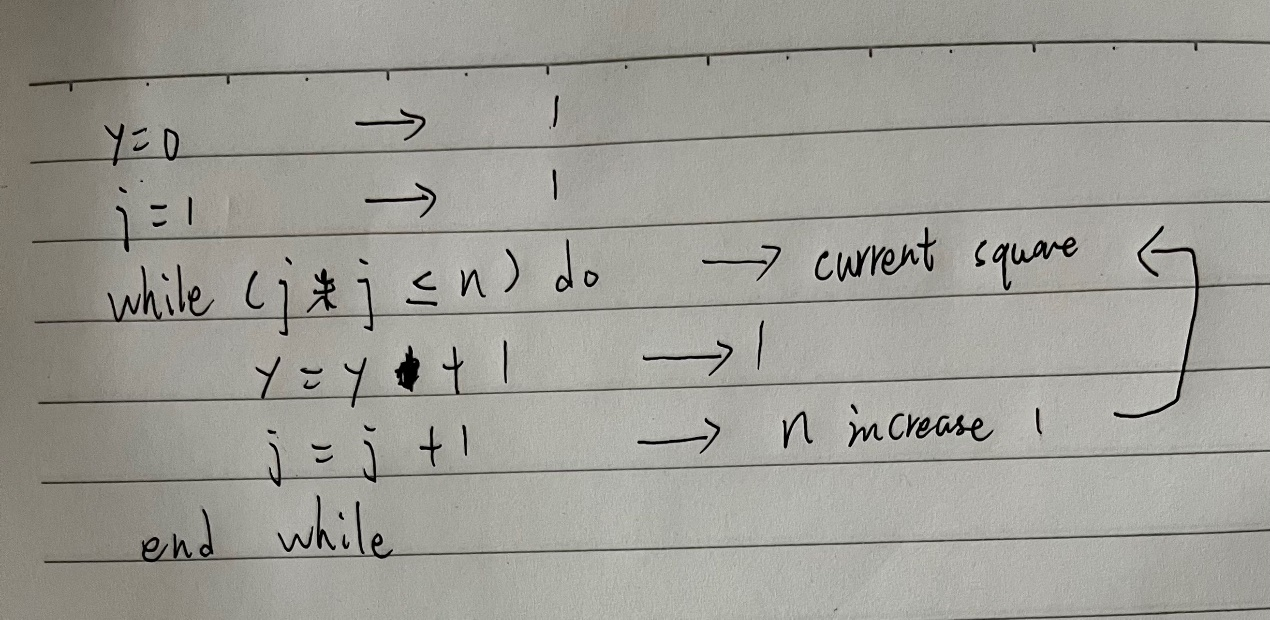 y=0 → 1
j=1 → 1
while (j * j ≤ n) do → current square
y = y + 1 → 1
j = j + 1 → n increase 1
end while